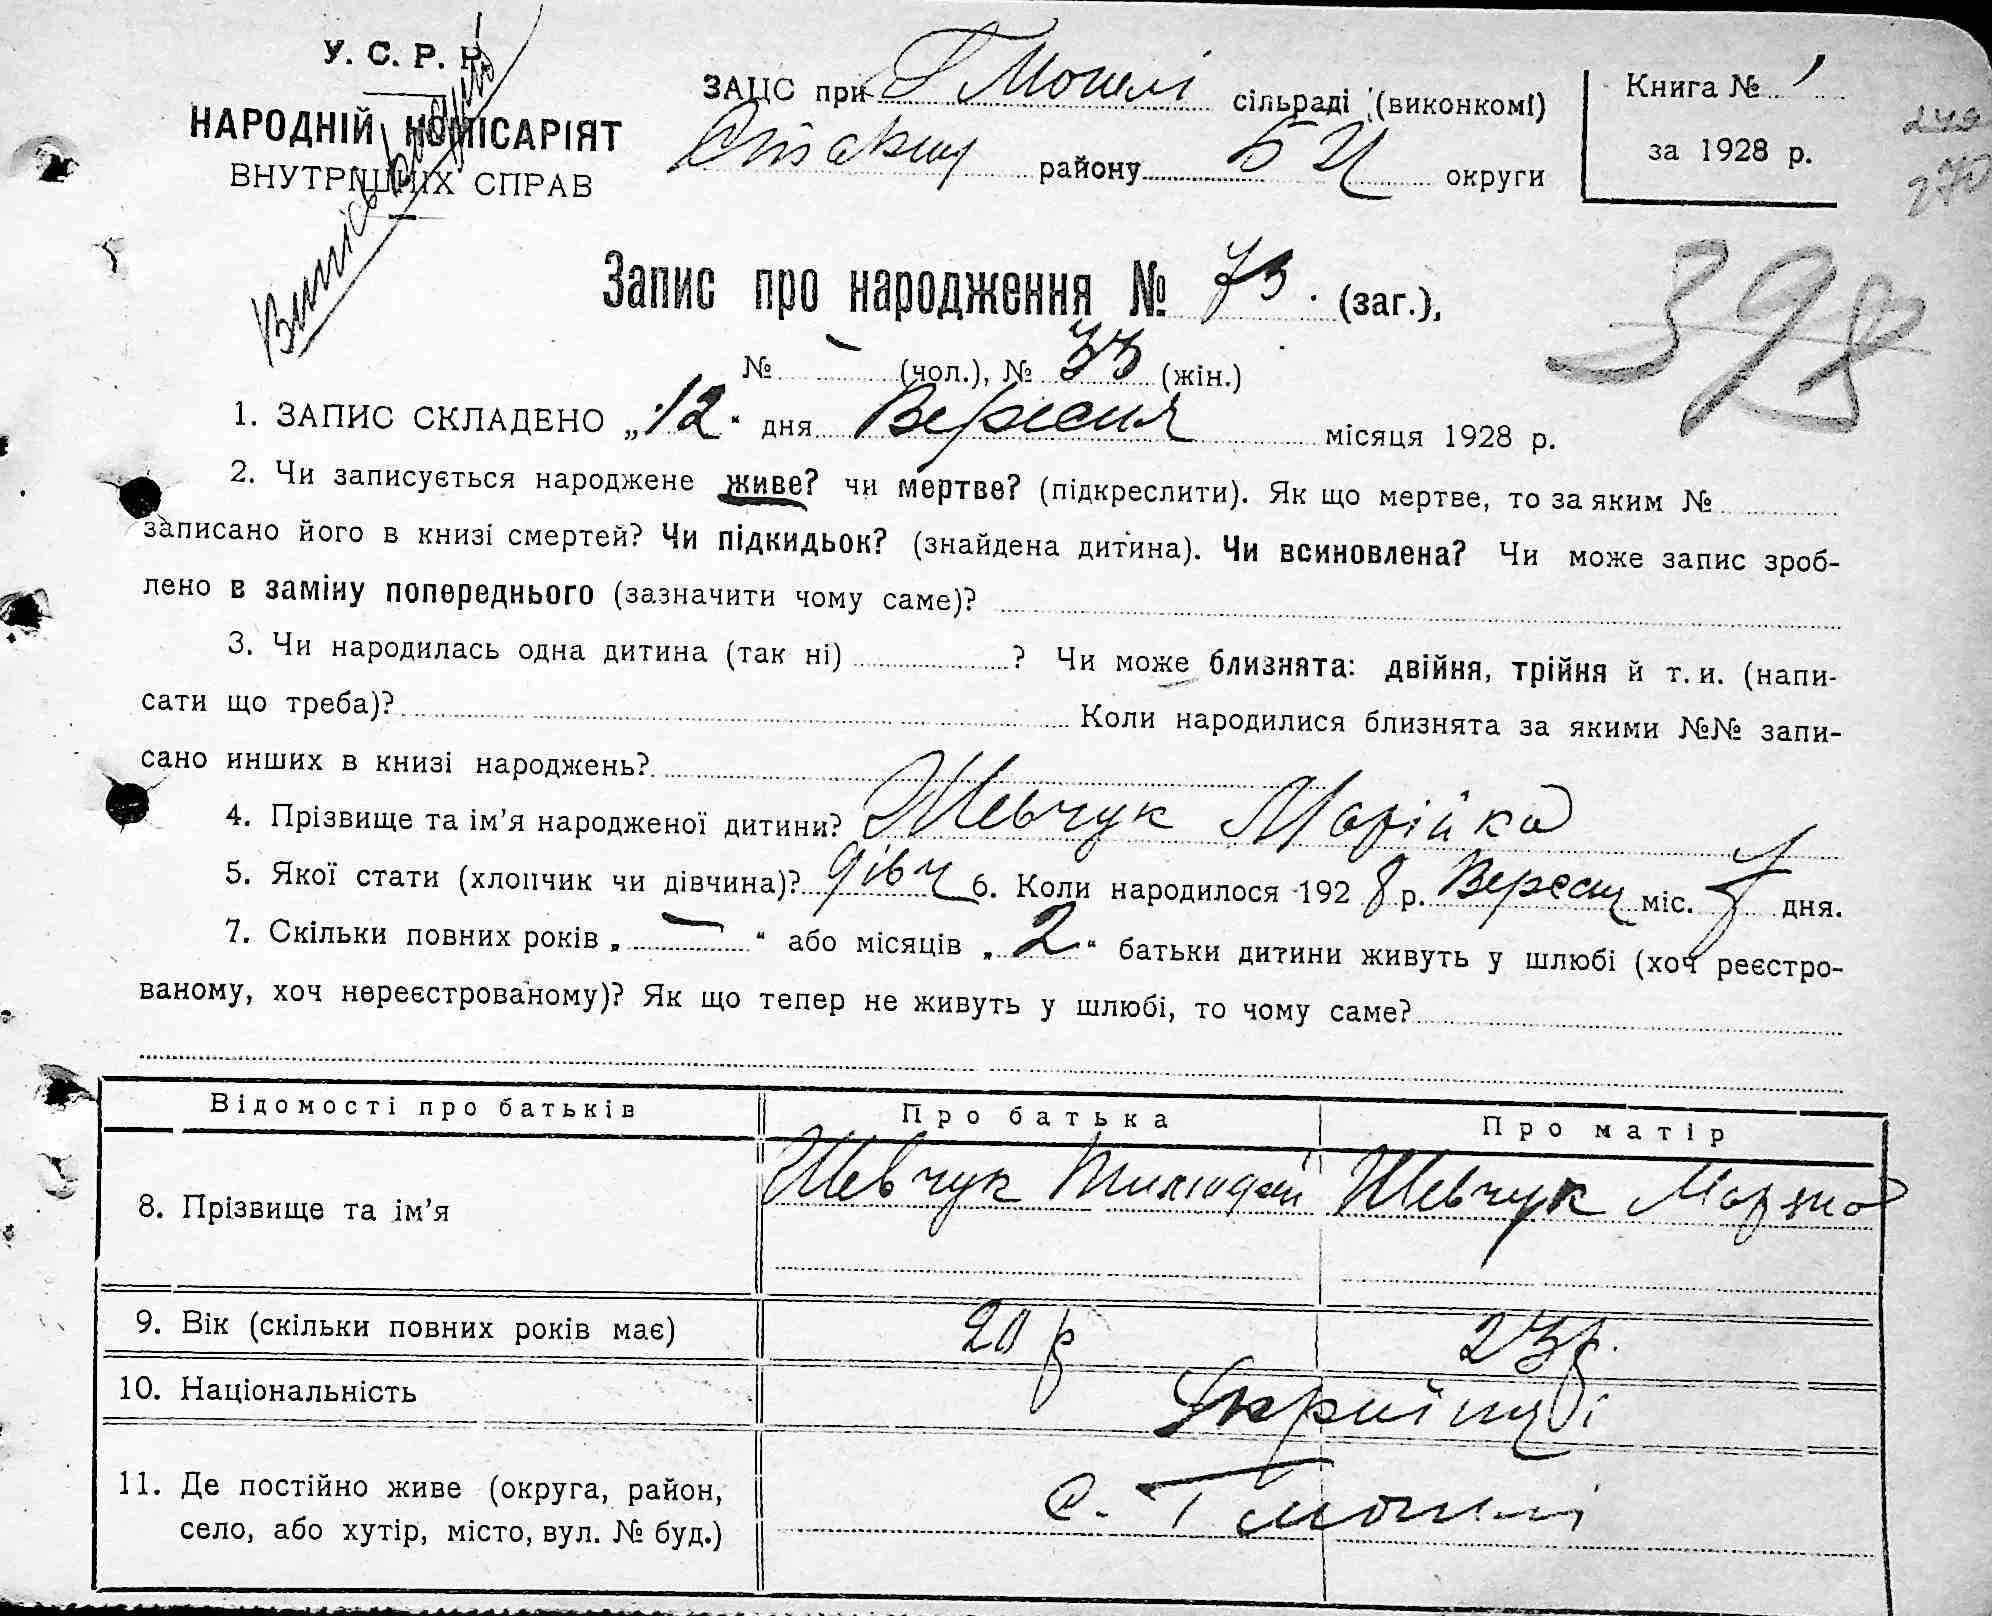 У. С. Р. Р.
НАРОДНІЙ КОМІСАРІЯТ
ВНУТРІШНІХ СПРАВ
ЗАЦС при Т Могилі сільраді (виконкомі)
району БЦ округи
Книга № 1
за 1928 р.
270
398
Запис про народження № 73. (заг.),
№ – (чол.), № 33 (жін.)
1. ЗАПИС СКЛАДЕНО „12“ дня Вересня місяця 1928 р.
2. Чи записується народжене живе? чи мертве? (підкреслити). Як що мертве, то за яким №
записано його в книзі смертей? Чи підкидьок? (знайдена дитина). Чи всиновлена? Чи може запис зроб-
лено в заміну попереднього (зазначити чому саме)?
3. Чи народилась одна дитина (так ні) ? Чи може близнята: двійня, трійня й т. и. (напи-
сати що треба)? Коли народилися близнята за якими №№ запи-
сано инших в книзі народжень?
4. Прізвище та ім’я народженої дитини? Шевчук Марійка
5. Якої стати (хлопчик чи дівчина)? дівч 6. Коли народилося 1928 р. Вересня міс. 7 дня.
7. Скільки повних років „ – “ або місяців „ 2 “ батьки дитини живуть у шлюбі (хоч реєстро-
ваному, хоч нереєстрованому)? Як що тепер не живуть у шлюбі, то чому саме?
Відомості про батьків Про батька Про матір
8. Прізвище та ім’я Шевчук Шевчук
9. Вік (скільки повних років має) 20 р 23 р.
10. Національність Українці
11. Де постійно живе (округа, район,
село, або хутір, місто, вул. № буд.) с. Т Могилі